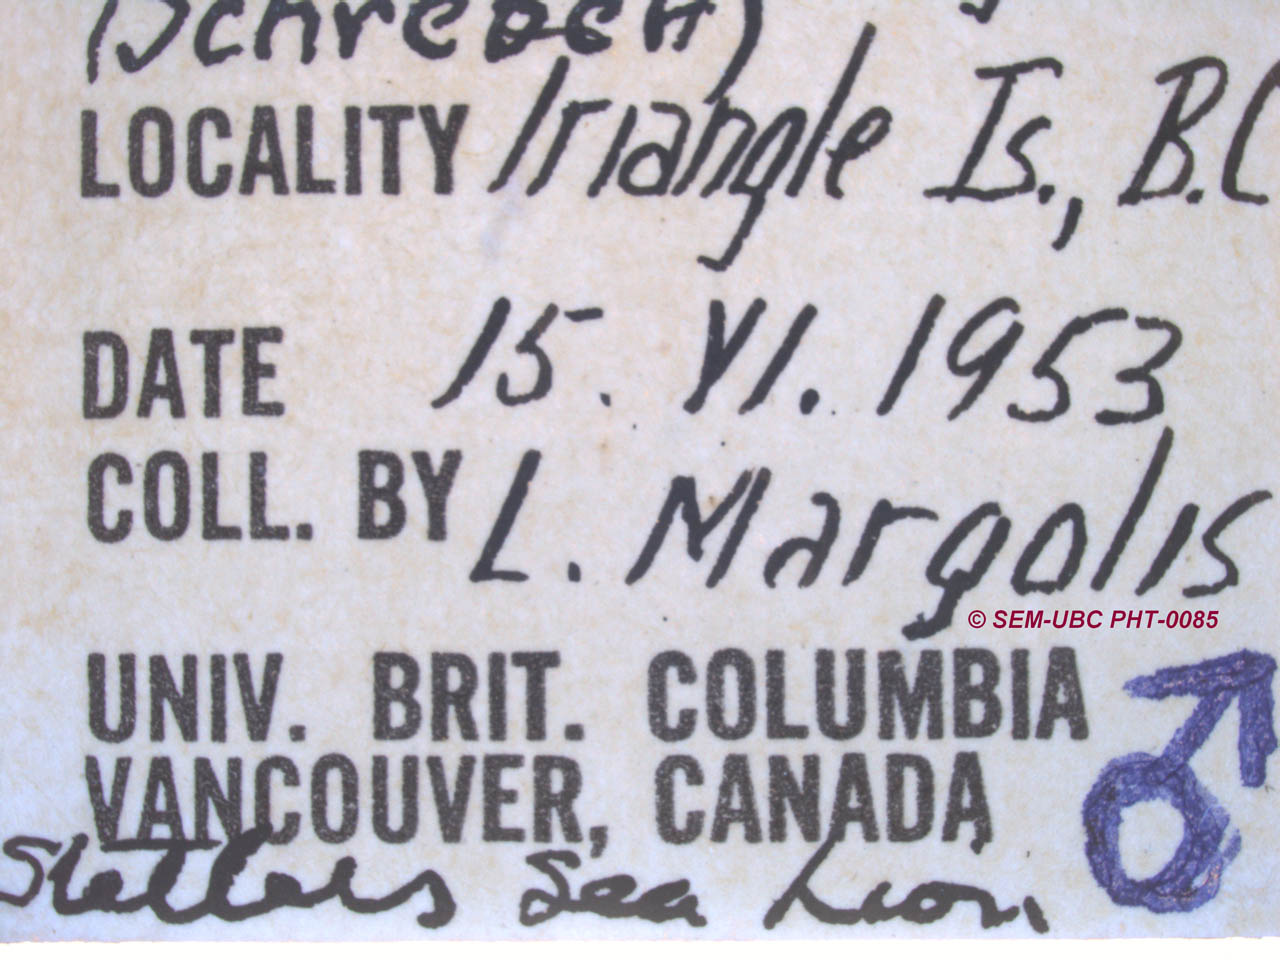 (Schreber)
LOCALITY Triangle Is., B.C
DATE 15. VI. 1953
COLL. BY L. Margolis
© SEM-UBC PHT-0085
UNIV. BRIT. COLUMBIA
VANCOUVER, CANADA
Stellers Sea Lion